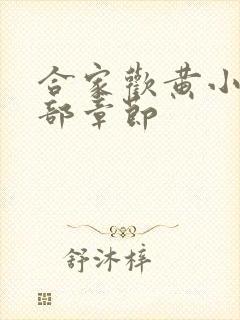 合家歡黄小
部章節
舒沐梓